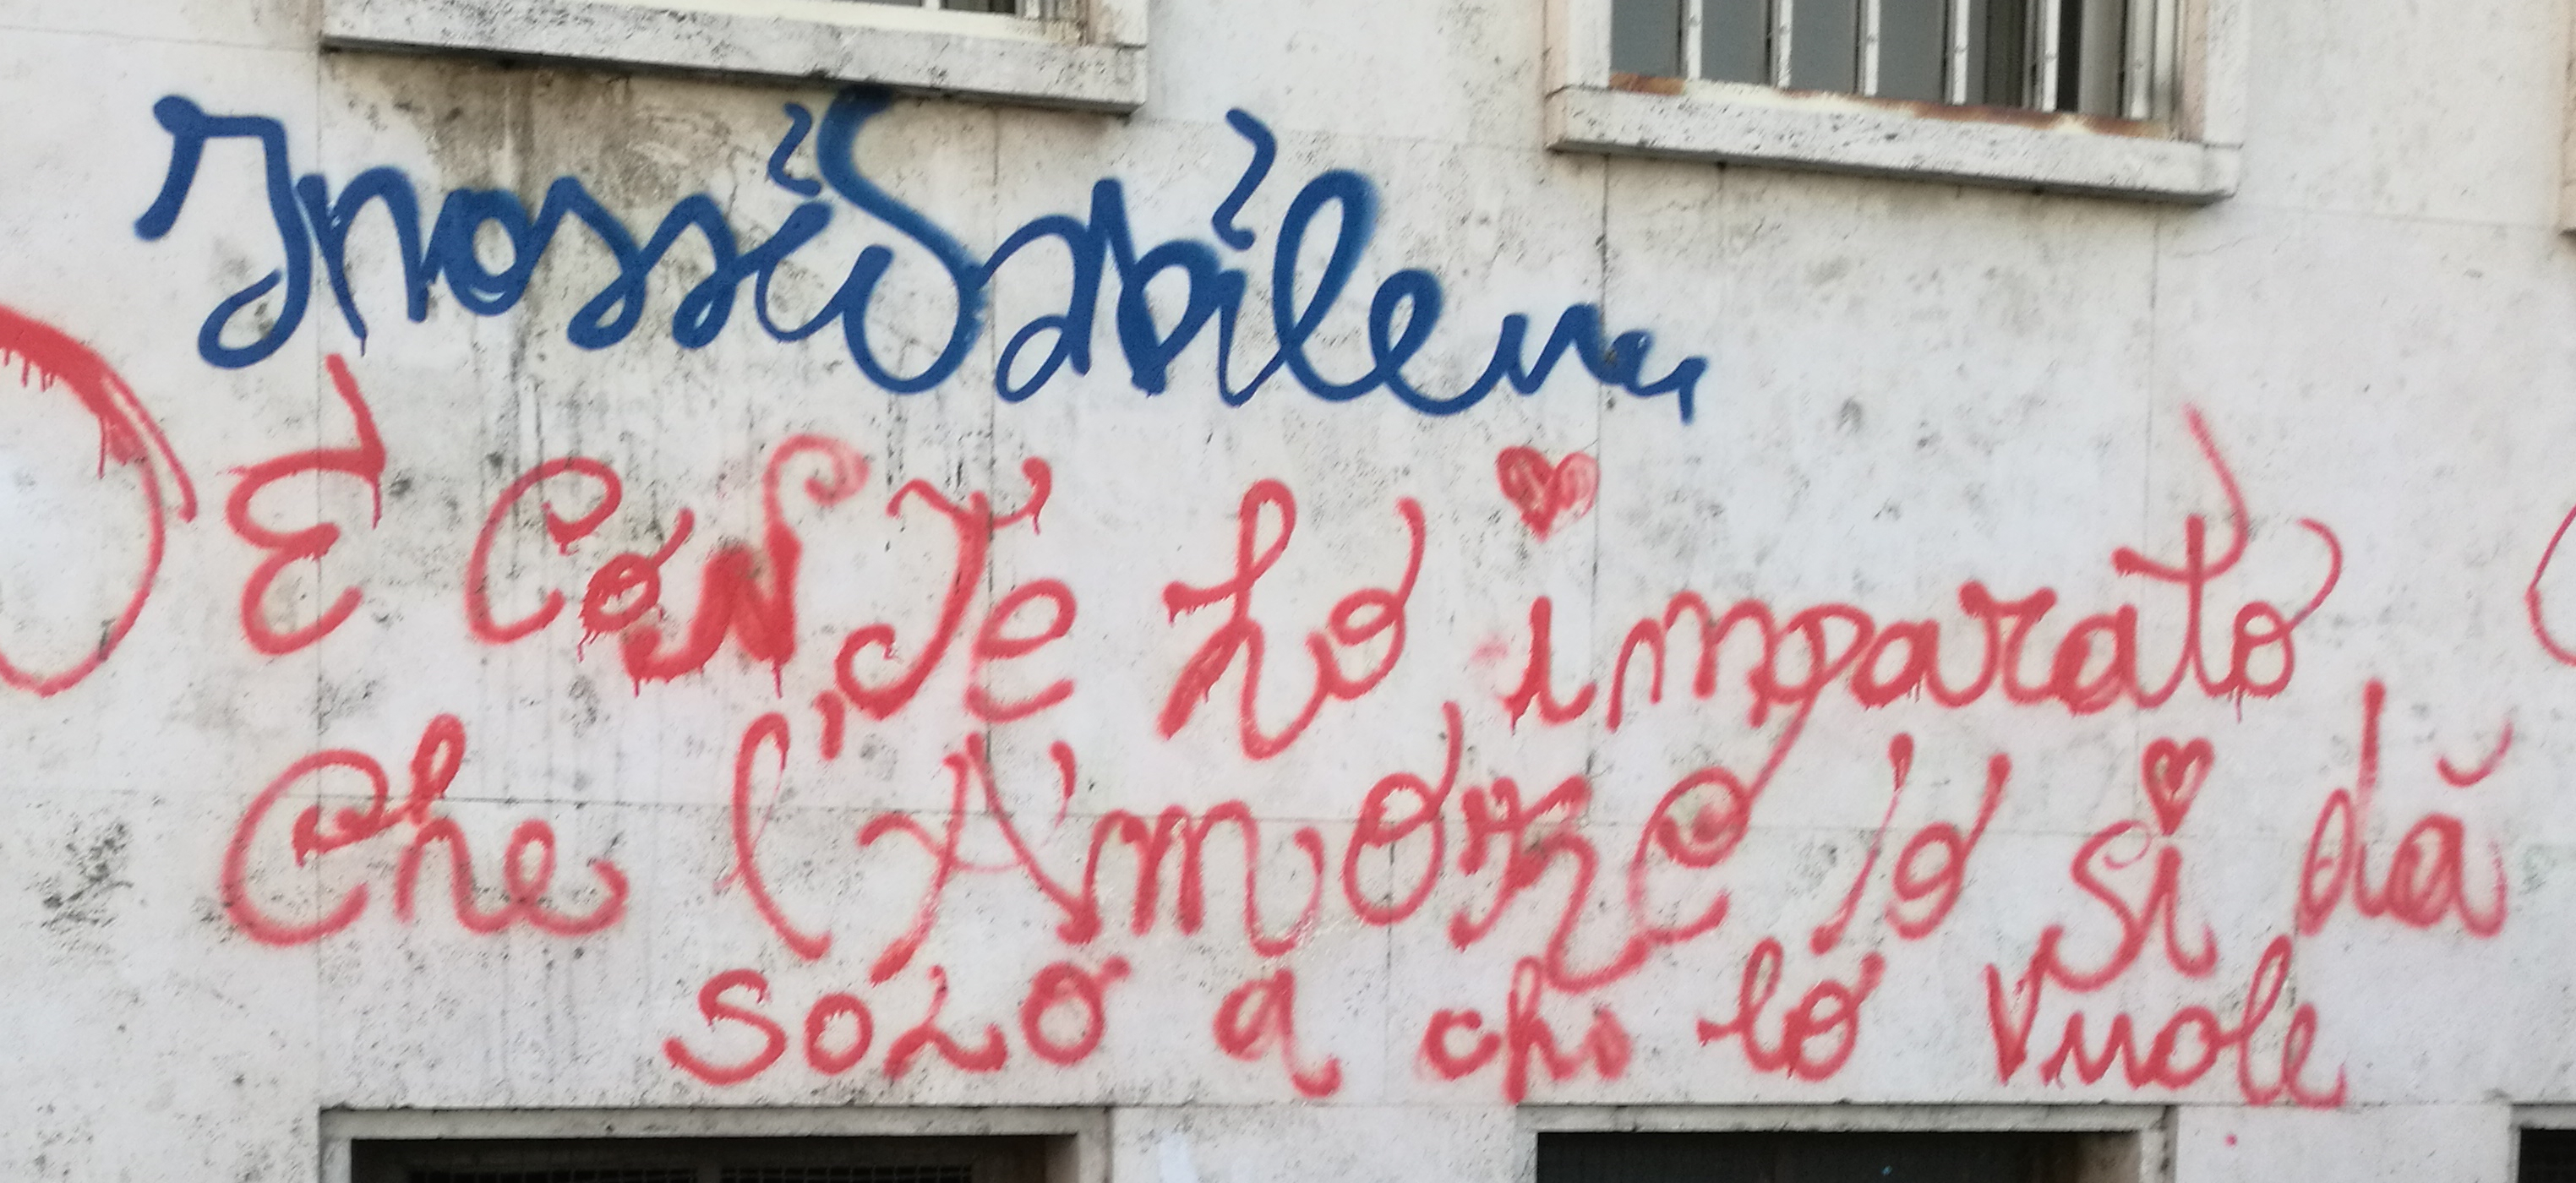 Inossidabile
E Con Te ho imparato
Che l'Amore lo si dà
solo a chi lo vuole